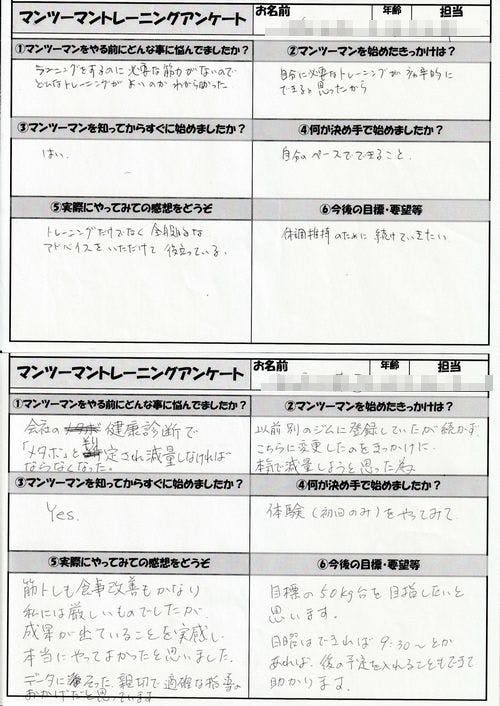 マンツーマントレーニングアンケート
お名前 年齢 担当
①マンツーマンをやる前にどんな事に悩んでましたか?
②マンツーマンを始めたきっかけは?
ランニングをするのに必要な筋力がないので
どんなトレーニングがよいのかわからなかった
自分に必要なトレーニングが効率的に
できると思ったから
③マンツーマンを知ってからすぐに始めましたか?
④何が決め手で始めましたか?
はい.
自分のペースでできること.
⑤実際にやってみての感想をどうぞ
⑥今後の目標・要望等
トレーニングだけでなく 全般的な
アドバイスをいただけて 役立っている.
体調維持のために 続けていきたい
マンツーマントレーニングアンケート
お名前 年齢 担当
①マンツーマンをやる前にどんな事に悩んでましたか?
②マンツーマンを始めたきっかけは?
会社の 健康診断で
「メタボ」と判定され減量しなければ
ならなくなった。
以前別のジムに登録していたが続かず、
こちらに変更したのをきっかけに
本気で減量しようと思った為
③マンツーマンを知ってからすぐに始めましたか?
④何が決め手で始めましたか?
Yes.
体験(初回のみ)をやってみて.
⑤実際にやってみての感想をどうぞ
⑥今後の目標・要望等
筋トレも食事改善もかなり
私には厳しいものでしたが、
成果が出ていることを実感し、
本当にやってよかったと思いました。
データに沿った、親切で適確な指導の
おかげだと思っています
目標の50kg台を目指したいと
思います。
日曜はできれば 9:30〜とか
あれば、後の予定を入れることもできて
助かります。